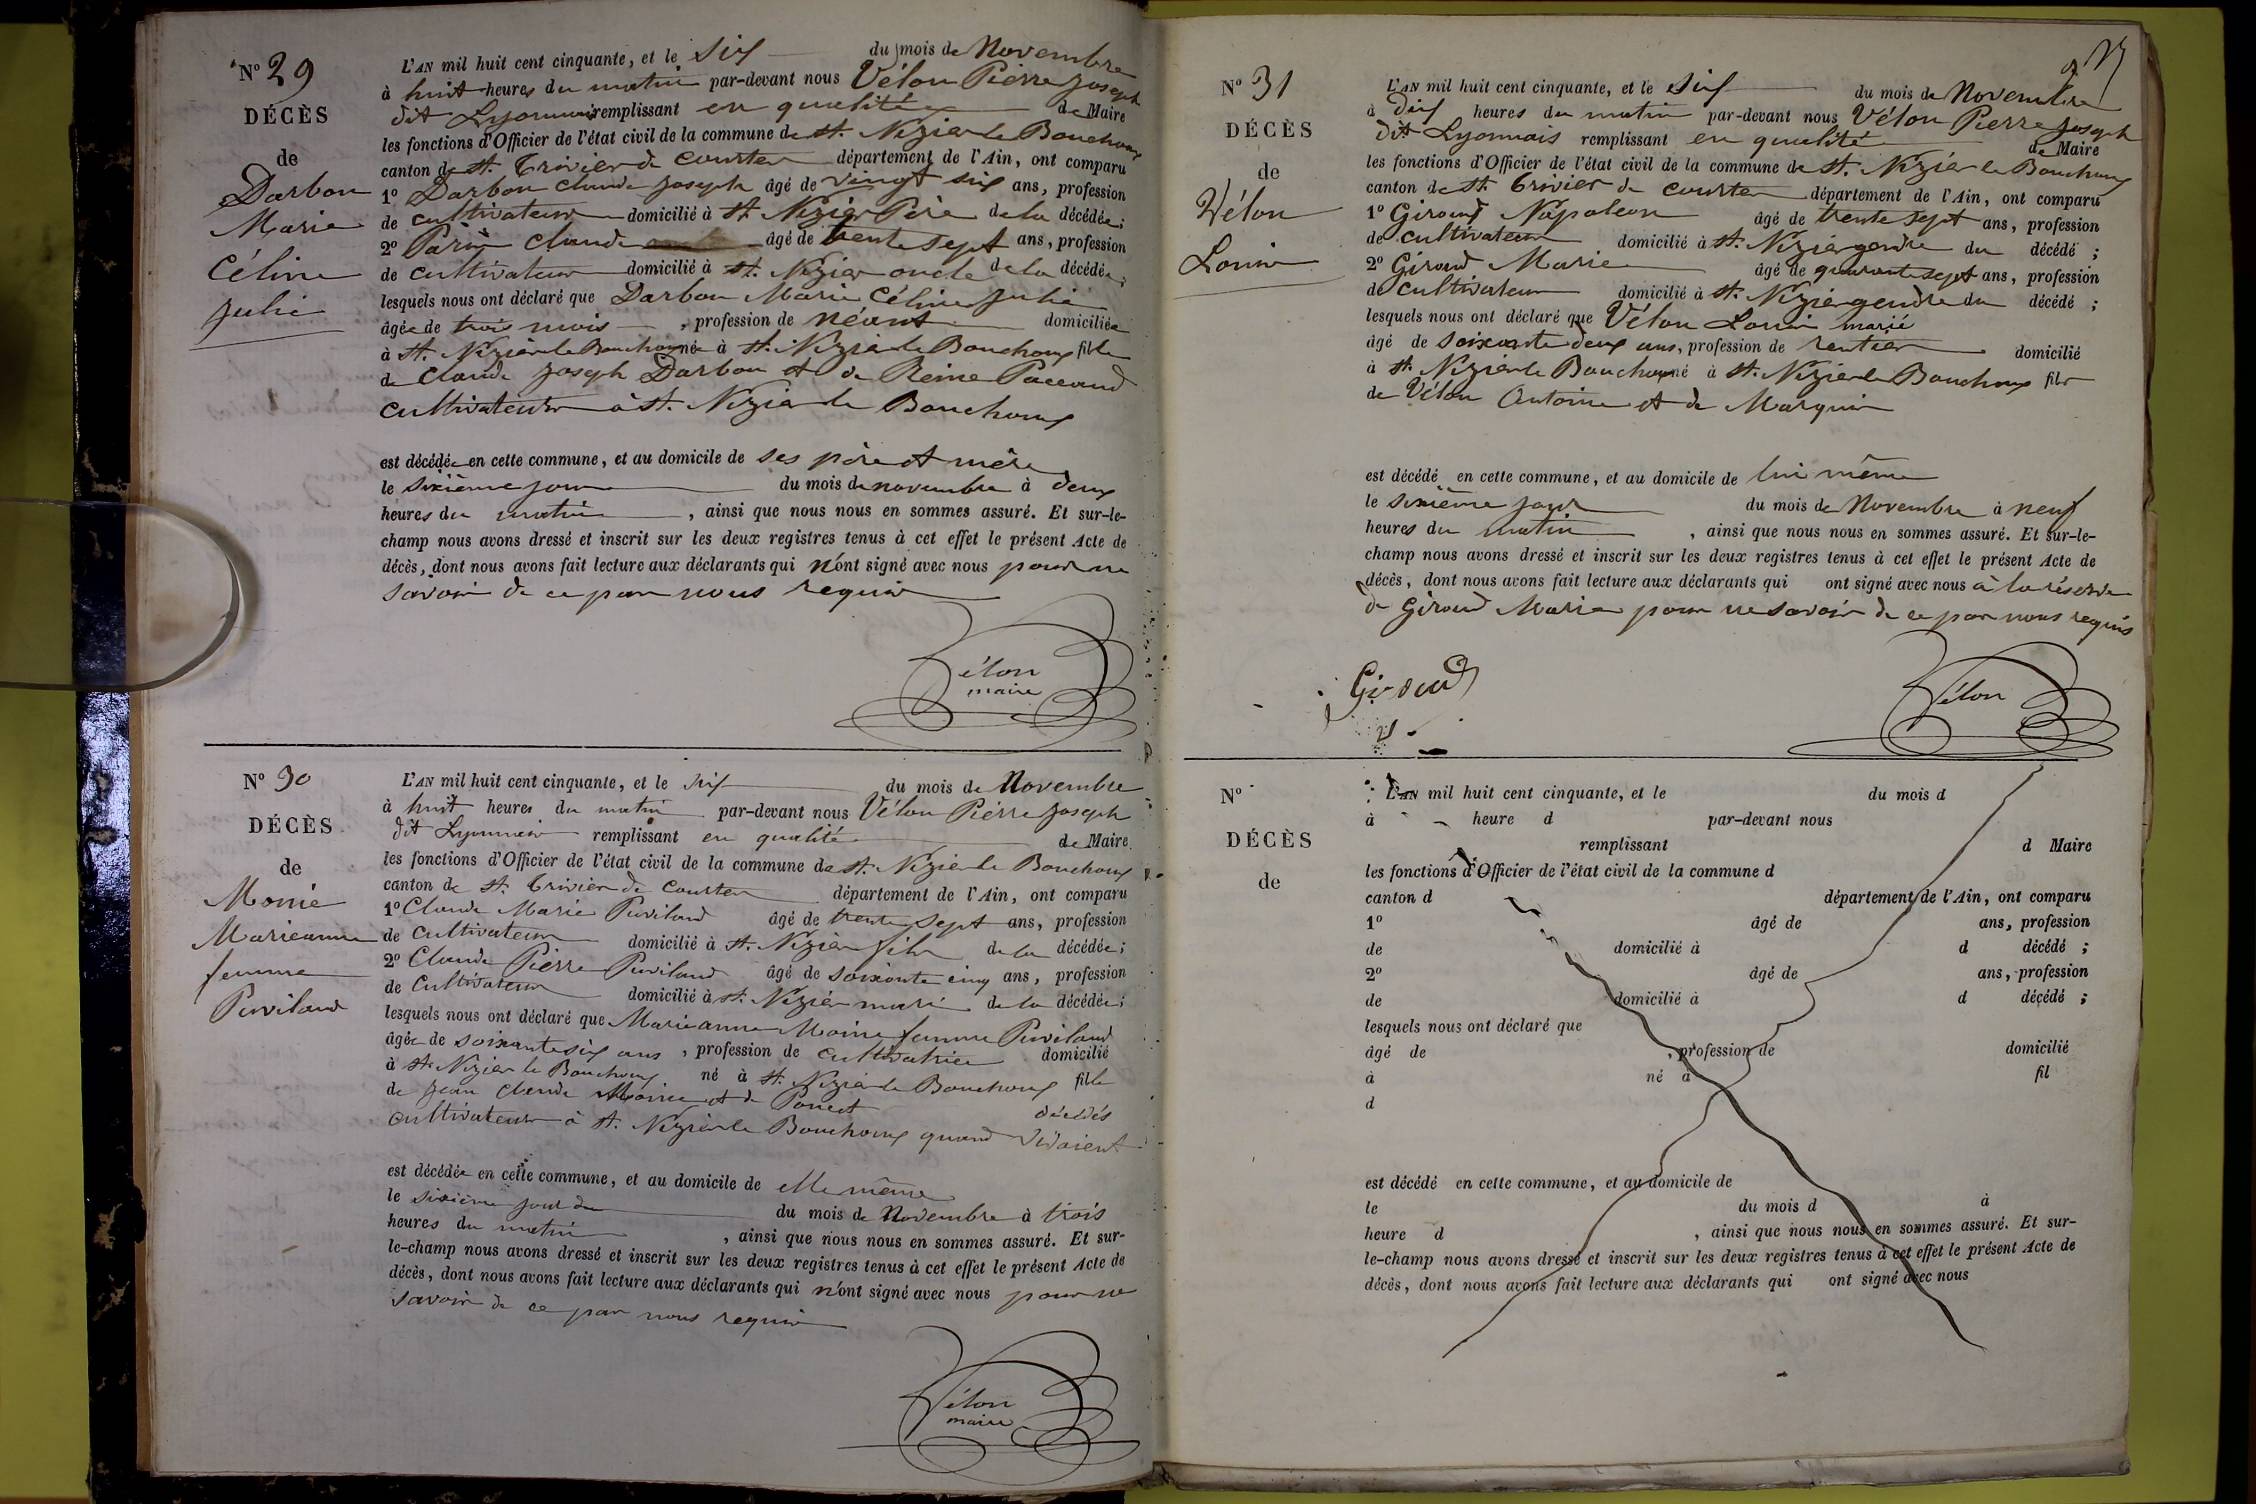 N° 29
DÉCÈS
de
Darbon
Marie
Céline
Julie
L'AN mil huit cent cinquante, et le six du mois de Novembre
à huit heures du matin par-devant nous Vélon Pierre Joseph
dit Lyonnais remplissant en qualité de Maire
les fonctions d'Officier de l'état civil de la commune de st. Nizier le Bouchoux
canton de st. Trivier de courtes département de l'Ain, ont comparu
1° Darbon claude Joseph âgé de vingt six ans, profession
de cultivateur domicilié à st. Nizier Père de la décédée;
2° claude âgé de trente sept ans, profession
de cultivateur domicilié à st. Nizier oncle de la décédée;
lesquels nous ont déclaré que Darbon Marie Céline Julie
âgée de trois mois, profession de néant domiciliée
à st. Nizier le Bouchoux née à st. Nizier le Bouchoux fille
de claude Joseph Darbon et de Reine Paccoud
cultivateurs à st. Nizier le Bouchoux
est décédée en cette commune, et au domicile de ses père et mère
le sixième jour du mois de novembre à deux
heures du matin, ainsi que nous nous en sommes assuré. Et sur-le-
champ nous avons dressé et inscrit sur les deux registres tenus à cet effet le présent Acte de
décès, dont nous avons fait lecture aux déclarants qui n'ont signé avec nous pour ne
savoir de ce par nous requis
Vélon
maire
N° 30
DÉCÈS
de
Moine
Marieanne
femme
Puvilland
L'AN mil huit cent cinquante, et le six du mois de Novembre
à huit heures du matin par-devant nous Vélon Pierre Joseph
dit Lyonnais remplissant en qualité de Maire
les fonctions d'Officier de l'état civil de la commune de st. Nizier le Bouchoux
canton de st. Trivier de Courtes département de l'Ain, ont comparu
1° Claude Marie Puvilland âgé de trente sept ans, profession
de cultivateur domicilié à st. Nizier fils de la décédée;
2° Claude Pierre Puvilland âgé de soixante cinq ans, profession
de cultivateur domicilié à st. Nizier mari de la décédée;
lesquels nous ont déclaré que Marieanne Moine femme Puvilland
âgée de soixante six ans, profession de cultivatrice domicilié
à st. Nizier le Bouchoux né à st. Nizier le Bouchoux fille
de Jean Claude Moine et de Poncet décédés
cultivateurs à st. Nizier le Bouchoux quand vivaient
est décédée en cette commune, et au domicile de elle même
le sixième jour du du mois de Novembre à trois
heures du matin, ainsi que nous nous en sommes assuré. Et sur-
le-champ nous avons dressé et inscrit sur les deux registres tenus à cet effet le présent Acte de
décès, dont nous avons fait lecture aux déclarants qui n'ont signé avec nous pour ne
savoir de ce par nous requis
Vélon
maire
N° 31
DÉCÈS
de
Vélon
Louis
L'AN mil huit cent cinquante, et le six du mois de Novembre
à dix heures du matin par-devant nous Vélon Pierre Joseph
dit Lyonnais remplissant en qualité de Maire
les fonctions d'Officier de l'état civil de la commune de st. Nizier le Bouchoux
canton de st. Trivier de courtes département de l'Ain, ont comparu
1° Giroud Napoleon âgé de trente sept ans, profession
de cultivateur domicilié à st. Nizier gendre du décédé;
2° Giroud Marie âgé de quarante sept ans, profession
de cultivateur domicilié à st. Nizier gendre du décédé;
lesquels nous ont déclaré que Vélon Louis marié
âgé de soixante deux ans, profession de rentier domicilié
à st. Nizier le Bouchoux né à st. Nizier le Bouchoux fils
de Vélon Antoine et de Marguin
est décédé en cette commune, et au domicile de lui même
le sixième jour du mois de Novembre à neuf
heures du matin, ainsi que nous nous en sommes assuré. Et sur-le-
champ nous avons dressé et inscrit sur les deux registres tenus à cet effet le présent Acte de
décès, dont nous avons fait lecture aux déclarants qui ont signé avec nous à la réserve
de Giroud Marie pour ne savoir de ce par nous requis
Giroud
Vélon
N°
DÉCÈS
de
L'AN mil huit cent cinquante, et le du mois d
à heure d par-devant nous
remplissant d Maire
les fonctions d'Officier de l'état civil de la commune d
canton d département de l'Ain, ont comparu
1° âgé de ans, profession
de domicilié à d décédé ;
2° âgé de ans, profession
de domicilié à d décédé ;
lesquels nous ont déclaré que
âgé de , profession de domicilié
à né à fil
d
est décédé en cette commune, et au domicile de
le du mois d à
heure d , ainsi que nous nous en sommes assuré. Et sur-
le-champ nous avons dressé et inscrit sur les deux registres tenus à cet effet le présent Acte de
décès, dont nous avons fait lecture aux déclarants qui ont signé avec nous